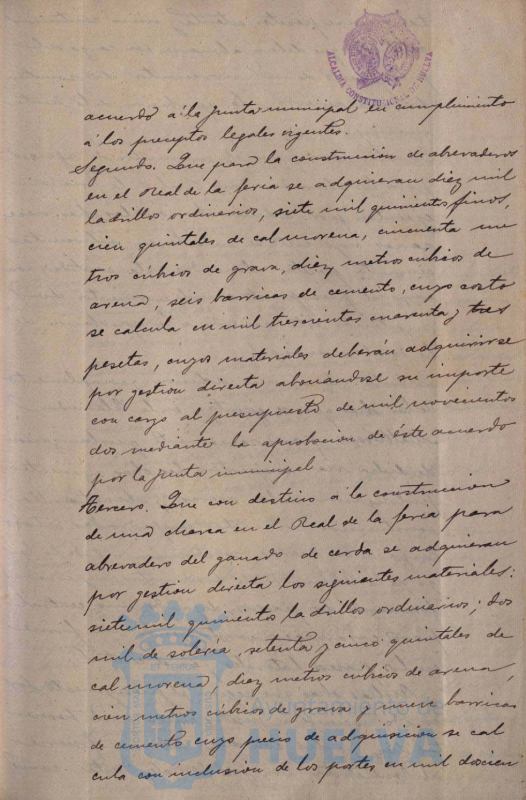 ALCALDIA CONSTITUCIONAL DE HUELVA
acuerdo á la Junta municipal en cumplimiento
á los preceptos legales vigentes.
Segundo. Que para la construccion de abrevaderos
en el Real de la feria se adquieran diez mil
ladrillos ordinarios, siete mil quinientos finos,
cien quintales de cal morena, cincuenta me
tros cúbicos de grava, diez metros cúbicos de
arena, seis barricas de cemento, cuyo costo
se calcula en mil trescientas cuarenta y tres
pesetas, cuyos materiales deberán adquirirse
por gestion directa abonándose su importe
con cargo al presupuesto de mil novecientos
dos mediante la aprobacion de éste acuerdo
por la Junta municipal
Tercero. Que con destino á la construccion
de una charca en el Real de la feria para
abrevadero del ganado de cerda se adquieran
por gestion directa los siguientes materiales:
siete mil quinientos ladrillos ordinarios; dos
mil de solería, setenta y cinco quintales de
cal morena, diez metros cúbicos de arena,
cien metros cúbicos de grava y nueve barricas
de cemento cuyo precio de adquisicion se cal
cula con inclusion de los portes en mil doscien
HUELVA